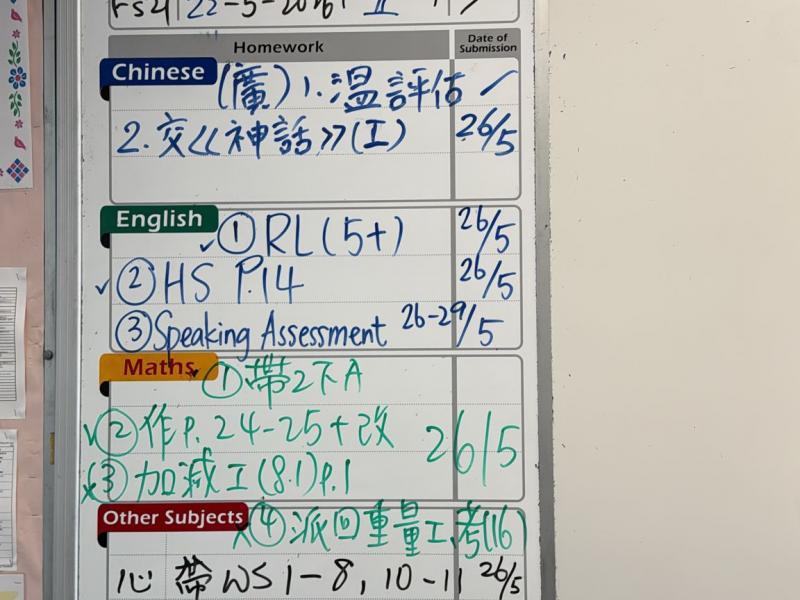 22-5-2026
Homework Date of Submission
Chinese (廣) 1. 溫評估 ✓
2. 交《神話》(I) 26/5
English ✓ ① RL (5+) 26/5
✓ ② HS P.14 26/5
③ Speaking Assessment 26-29/5
Maths ① 帶2下A
✓ ② 作p. 24-25+改 26/5
③ 加減工(8.1)p.1
Other Subjects ④ 派回重量工、考(16)
心 帶WS 1-8, 10-11 26/5